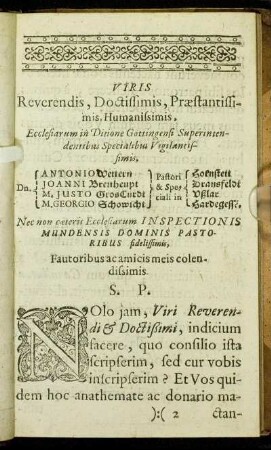 VIRIS
Reverendis, Doctissimis, Præstantissi-
mis, Humanissimis,
Ecclesiarum in Ditione Gottingensi Superinten-
dentibus Specialibus Vigilantis-
simis,
Dn. ANTONIO Wettern Pastori & Spe- ciali in Hohnstett
JOANNI Brenheupt Dransfeldt
M. JUSTO GrosCurdt Ußlar
M. GEORGIO Schowicht Hardegess.
Nec non cæteris Ecclesiarum INSPECTIONIS
MUNDENSIS DOMINIS PASTO-
RIBUS fidelissimis,
Fautoribus ac amicis meis colen-
dissimis.
S. P.
NOlo jam, Viri Reveren-
di & Doctissimi, indicium
facere, quo consilio ista
scripserim, sed cur vobis
inscripserim? Et Vos qui-
dem hoc anathemate ac donario ma-
):( 2 ctan-